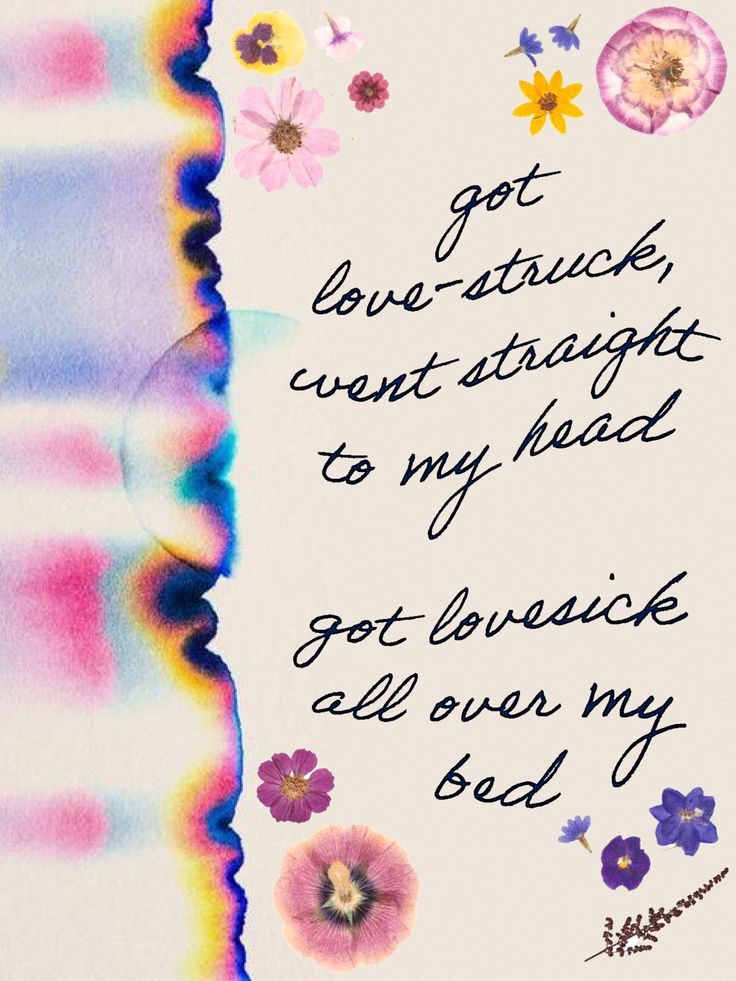 got
love-struck,
went straight
to my head
got lovesick
all over my
bed